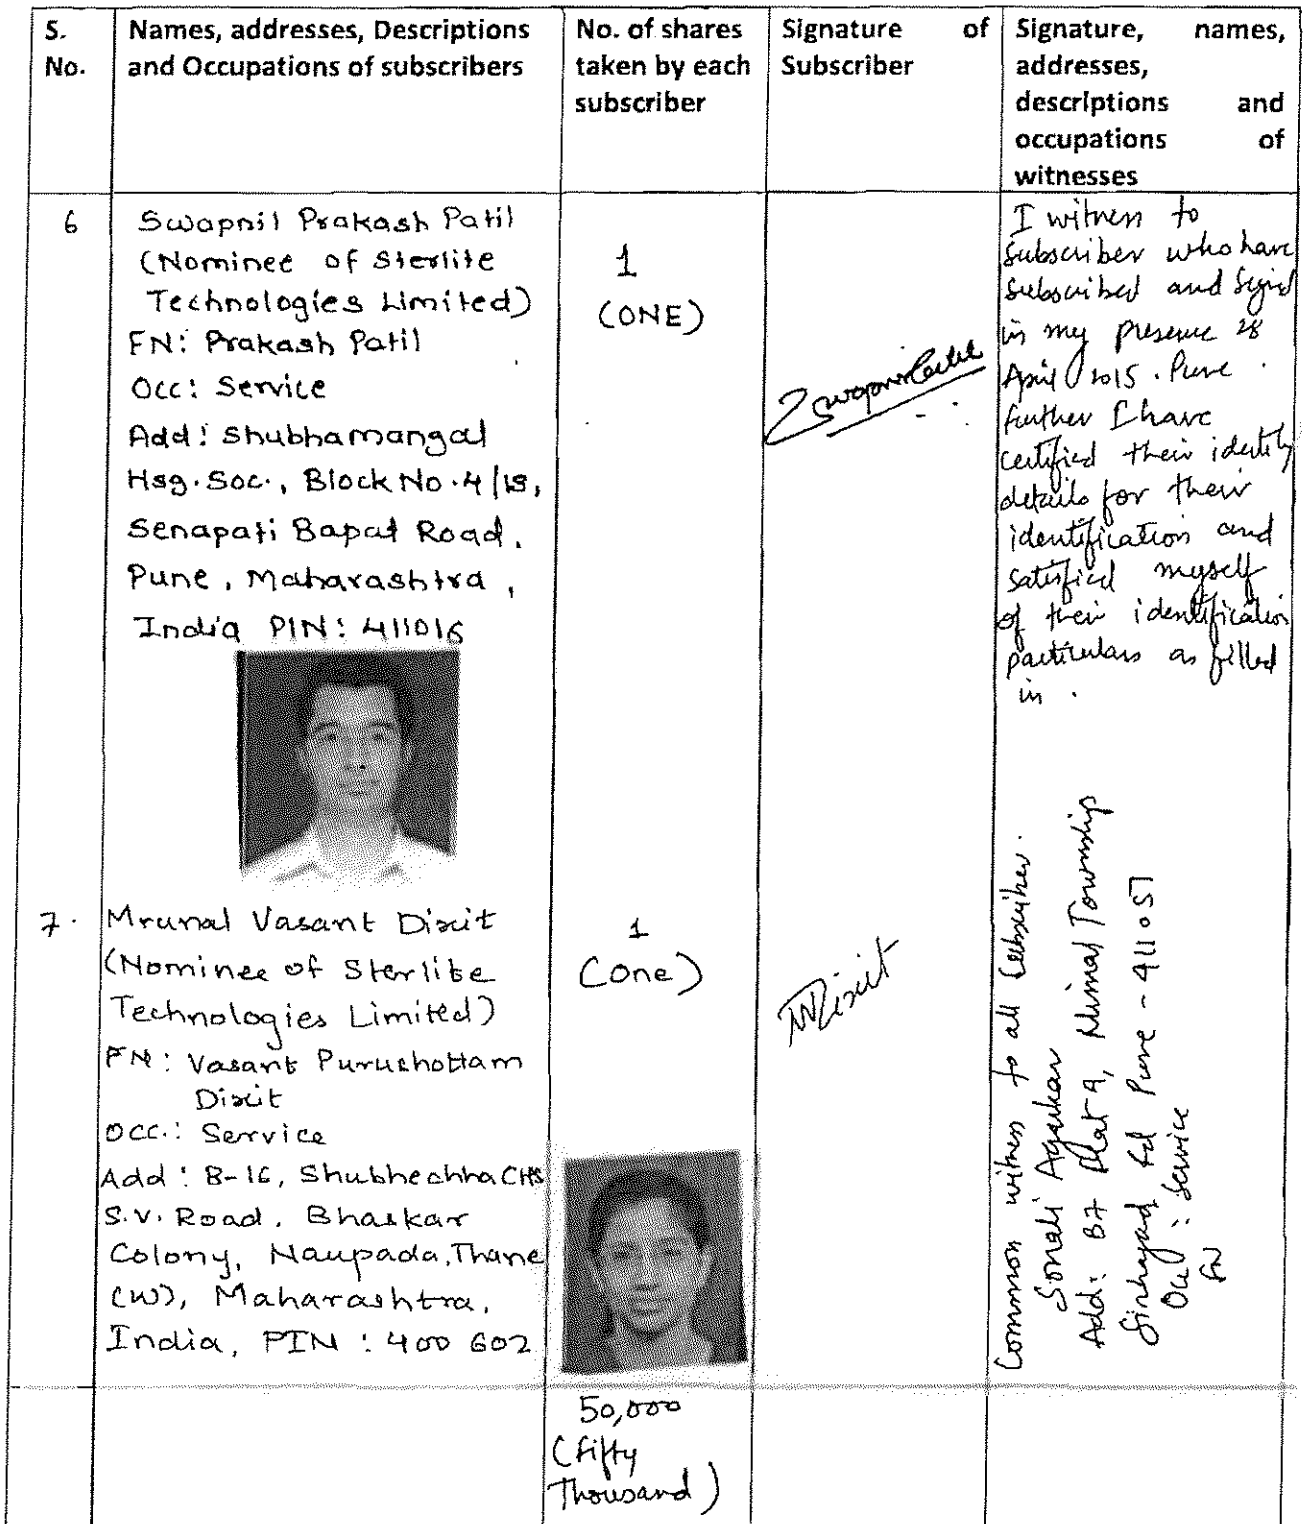 S. No.
Names, addresses, Descriptions
and Occupations of subscribers
No. of shares
taken by each
subscriber
Signature of
Subscriber
Signature, names,
addresses,
descriptions and
occupations of
witnesses
6
Swapnil Prakash Patil
(Nominee of Sterlite
Technologies Limited)
FN: Prakash Patil
Occ: Service
Add: Shubhamangal
Hsg. Soc., Block No. 4/
Senapati Bapat Road,
Pune, Maharashtra,
India PIN: 411016
1
(ONE)
I witness to
subscriber who have
subscribed and signed
in my presence 28
April 2015. Pune.
further I have
certified their identity
details for their
identification and
satisfied myself
of their identification
particulars as filled
in.
7.
Mrunal Vasant Dixit
(Nominee of Sterlite
Technologies Limited)
FN: Vasant Purushottam
Dixit
Occ.: Service
Add: B-16, Shubhechha CHS
S.V. Road, Bhaskar
Colony, Naupada, Thane
(W), Maharashtra,
India, PIN: 400 602
1
(One)
Dixit
Common witness to all subscriber.
Sonali Agarkar
Add: B7 Flat 9, Nirmal Township
Sinhagad Rd Pune - 411051
Occ: Service
FN
50,000
(Fifty
Thousand)